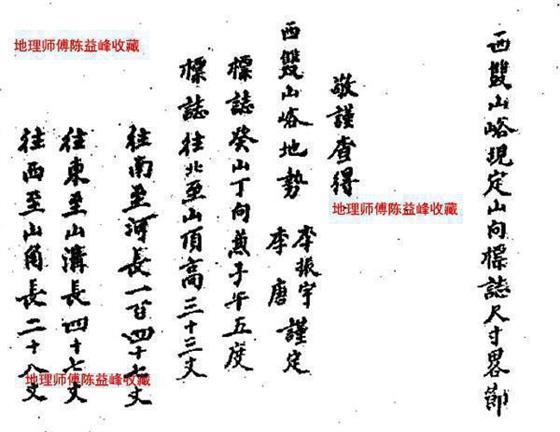 西雙山峪現定山向標誌尺寸畧節
敬謹查得
西雙山峪地勢 李振宇 李唐 謹定
標誌癸山丁向兼子午五度
標誌往北至山頂高三十三丈
往南至河長一百四十七丈
往東至山溝長四十七丈
往西至山角長二十八丈
地理师傅陈益峰收藏
地理师傅陈益峰收藏
地理师傅陈益峰收藏